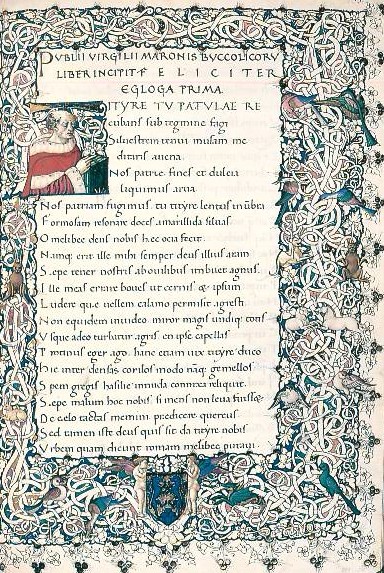 PVBLII VIRGILII MARONIS BVCCOLICORV
LIBER INCIPIT F E L I C I T E R
EGLOGA PRIMA
ITYRE TV PATVLAE RE
cubans sub tegmine fagi
Siluestrem tenui musam me
ditaris auena.
Nos patrie fines et dulcia
liquimus arua.
Nos patriam fugimus. tu tityre lentus in ūbra
Formosam resonare doces amarillida siluas
O melibee deus nobis hec ocia fecit.
Namq; erit ille mihi semper deus illius aram
Sepe tener nostris ab ouilibus imbuet agnus.
Ille meas errare boues ut cernis & ipsum
Ludere que uellem calamo permisit agresti
Non equidem inuideo. miror magis undiq; totis
Vsque adeo turbatur agris en ipse capellas
Protinus eger ago. hanc etiam uix tityre duco
Hic inter densas corilos modo nāq; gemellos
Spem gregis hasilice in nuda connixa reliquit.
Sepe malum hoc nobis si mens non leua fuisse
De celo tactas memini predicere quercus
Sed tamen iste deus quis sit da tityre nobis
Vrbem quam dicunt romam melibee putaui